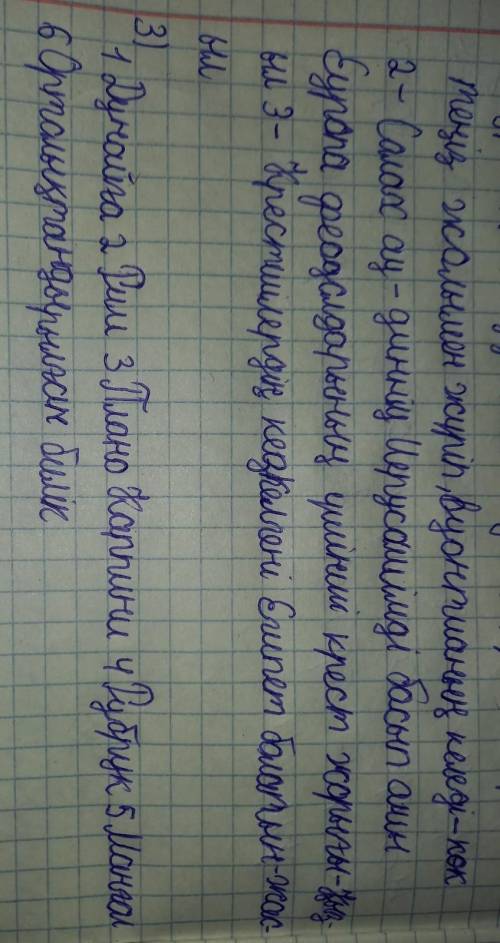 теңіз жолымен жүріп, византияның келеді-көк
2 - Салах ад-диннің Иерусалимді басып алып
Еуропа феодалдарының үшінші крест жорығы-қыз-
ыл 3 - Крестшілердің кездескені Египет болатын-жас-
ыл
3)
1 Дунайға 2 Рим 3 Плано Карпини 4 Рубрук 5 Манғол
6 Орталықтандырылған билік